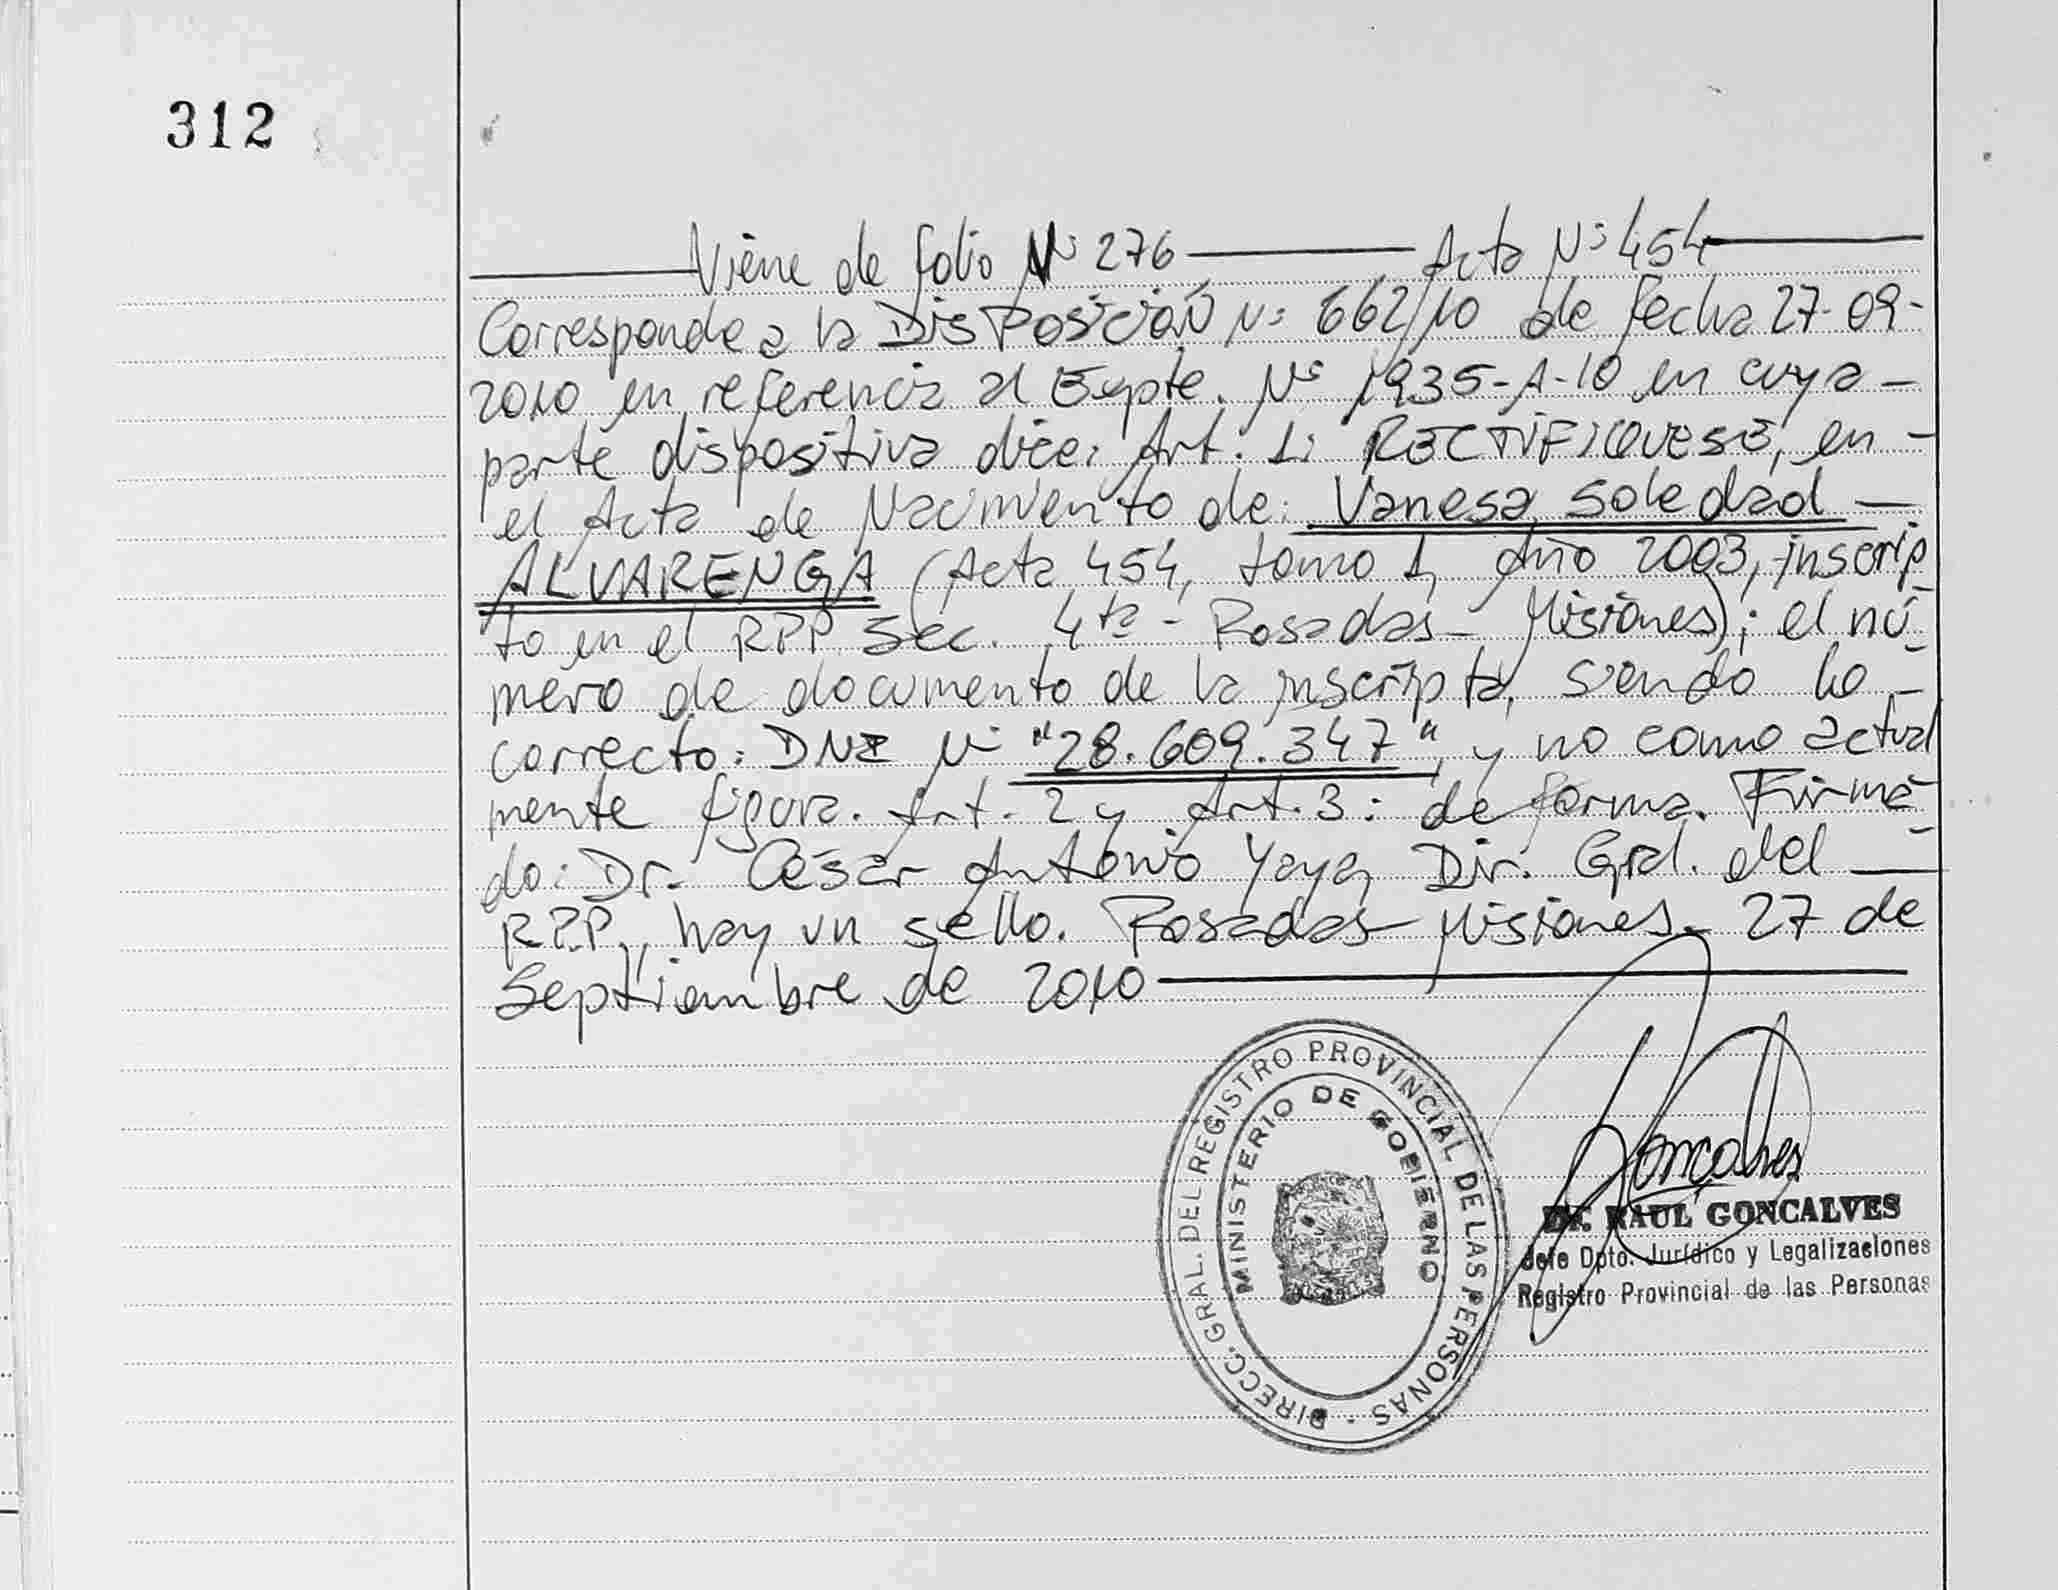 312
Viene de folio Nº 276 Acta Nº 454
Corresponde a la DISPOSICIÓN Nº 662/10 de fecha 27-09-
2010 en referencia al Expte. Nº 1935-A-10 en cuya -
parte dispositiva dice: Art. 1: RECTIFIQUESE, en -
el Acta de Nacimiento de: Vanesa Soledad —
ALVARENGA (Acta 454, tomo 1, Año 2003, inscrip-
to en el RPP Sec. 4ta - Posadas - Misiones); el nú-
mero de documento de la inscripta, siendo lo -
correcto: DNI Nº "28.609.347", y no como actual
mente figura. Art. 2 y Art. 3: de forma. Firma-
do: Dr. César Antonio Yaya, Dir. Gral. del —
RPP., hay un sello. Posadas - Misiones - 27 de
Septiembre de 2010
DIRECC. GRAL. DEL REGISTRO PROVINCIAL DE LAS PERSONAS
MINISTERIO DE GOBIERNO
Gonçalves
Dr. RAUL GONCALVES
Jefe Dpto. Jurídico y Legalizaciones
Registro Provincial de las Personas